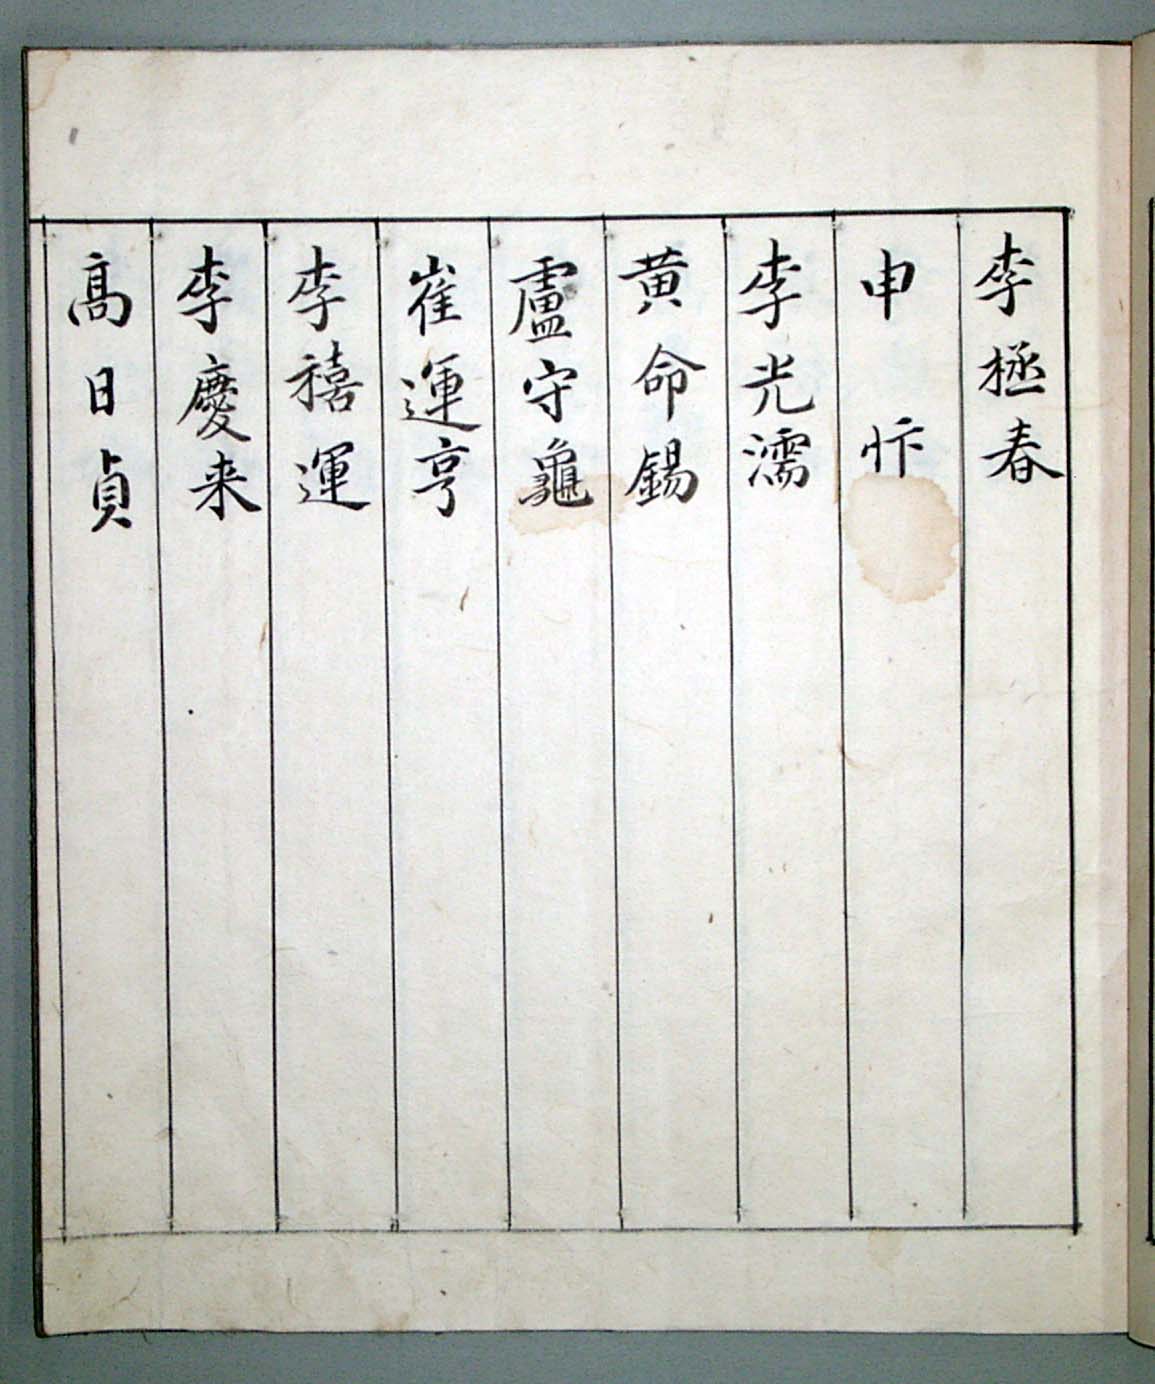 李拯春
申忭
李光濡
黄命錫
盧守龜
崔運亨
李禧運
李慶来
髙日貞